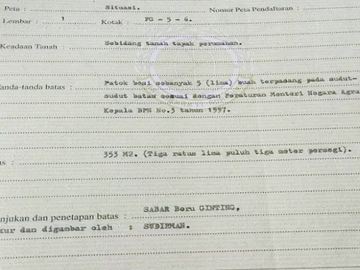 Peta : Situasi. Nomor Peta Pendaftaran :
Lembar : 1 Kotak : PG - 5 - 6.
Keadaan Tanah : Sebidang tanah tapak perumahan.
anda-tanda batas : Patok besi sebanyak 5 (lima) buah terpadang pada sudut-
sudut batas sesuai dengan Peraturan Menteri Negara Agra
Kepala BPN No.3 tahun 1997.
as : 353 M2. (Tiga ratus lima puluh tiga meter persegi).
njukan dan penetapan batas : SABAR Beru GINTING,
kur dan digambar oleh : SUDIRMAN.